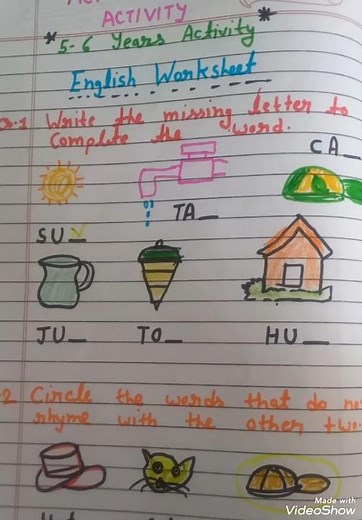 ACTIVITY
*5-6 Years Activity *
English Worksheet
Write the missing letter to
Complete the word.
CA_
TA_
SU_
JU_ TO_ HU_
Circle the words that do
rhyme with the other two
Made with
VideoShow